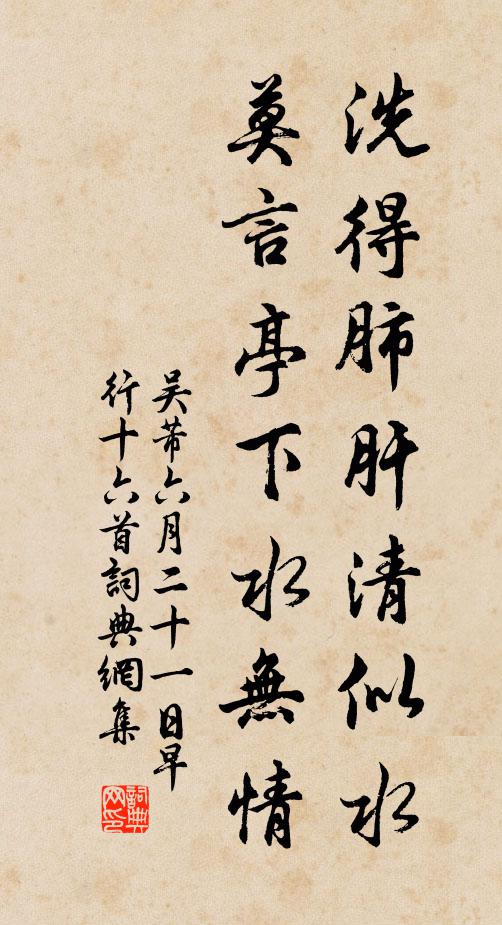 洗得肺肝清似水
莫言亭下水無情
吴芾六月二十一日早
行十六首詞典網集
詞典
网印